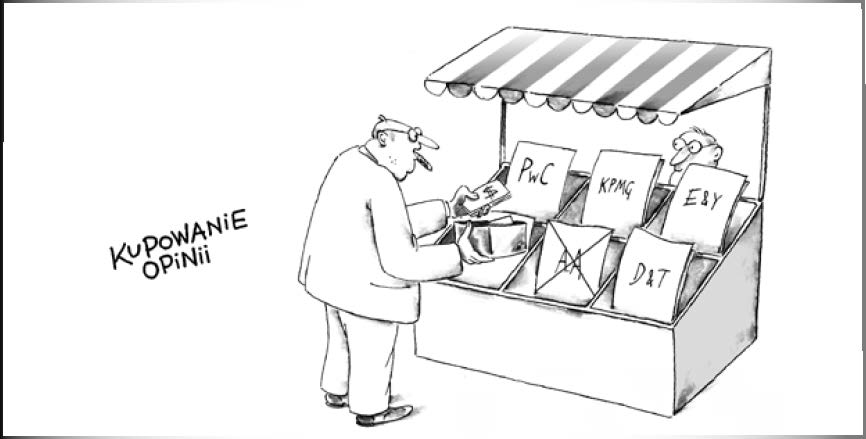 KUPOWANIE
OPINII
PwC
KPMG
E&Y
AA
D&T
$